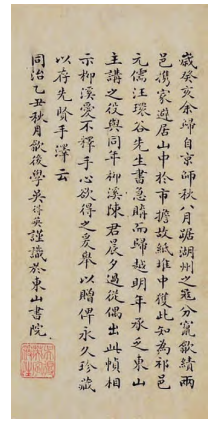 歲癸亥余歸自京師秋八月踞湖州之寇分竄歙績兩
邑携家避居山中於市擔故紙堆中獲此知為祁邑
元儒汪環谷先生書急購而歸越明年承乏東山
主講之役與同年柳溪陳君晨夕過從偶出此幀相
示柳溪愛不釋手心欲得之爰舉以贈俾永久珍藏
以存先賢手澤云
同治乙丑秋月歙後學吳得英謹識於東山書院